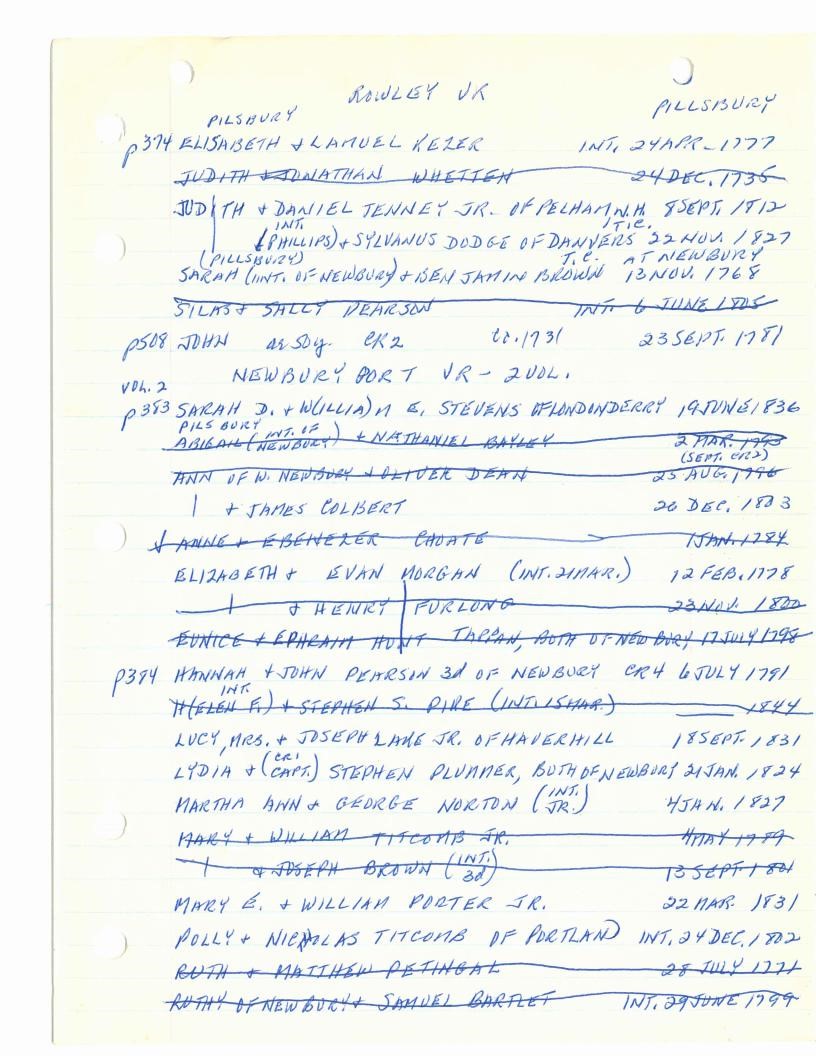 ROWLEY VR
PILSBURY PILLSBURY
p374 ELISABETH + LAMUEL KEZER INT. 24 APR - 1777
JUDITH + JONATHAN WHETTEN 24 DEC. 1735
JUDITH + DANIEL TENNEY JR. OF PELHAM N.H. 8 SEPT. 1812
INT. T.C.
(PHILLIPS) + SYLVANUS DODGE OF DANVERS 22 NOV. 1827
(PILLSBURY) T.C. AT NEWBURY
SARAH (INT. OF NEWBURY) + BENJAMIN BROWN 13 NOV. 1768
SILAS + SALLY PEARSON INT. 6 JUNE 1805
p508 JOHN ae 50y. CR2 1731 23 SEPT. 1781
NEWBURYPORT VR - 2 VOL.
VOL. 2
p383 SARAH D. + W(ILLIA)M E. STEVENS OF LONDONDERRY 19 JUNE 1836
PILSBURY
ABIGAIL (INT. OF NEWBURY) + NATHANIEL BAYLEY 2 MAR. 1793
(SEPT. CR2)
ANN OF W. NEWBURY + OLIVER DEAN 25 AUG. 1796
| + JAMES COLBERT 26 DEC. 1803
ANNE + EBENEZER CHOATE 1 JAN. 1784
ELIZABETH + EVAN MORGAN (INT. 21 MAR.) 12 FEB. 1778
| + HENRY FURLONG 23 NOV. 1800
EUNICE + EPHRAIM HUNT TAPPAN, BOTH OF NEWBURY 17 JULY 1798
p384 HANNAH + JOHN PEARSON 3d OF NEWBURY CR4 6 JULY 1791
INT.
H(ELEN F.) + STEPHEN S. PIKE (INT. 15 MAR.) 1844
LUCY, MRS. + JOSEPH LAKE JR. OF HAVERHILL 18 SEPT. 1831
LYDIA + (CR1 CAPT.) STEPHEN PLUMMER, BOTH OF NEWBURY 21 JAN. 1824
MARTHA ANN + GEORGE NORTON (INT. JR.) 4 JAN. 1827
MARY + WILLIAM TITCOMB JR. 4 MAY 1789
| + JOSEPH BROWN (INT. 3d) 13 SEPT 1801
MARY E. + WILLIAM PORTER JR. 22 MAR. 1831
POLLY + NICHOLAS TITCOMB OF PORTLAND INT. 24 DEC. 1802
RUTH + MATTHEW PETINGAL 28 JULY 1771
RUTHY OF NEWBURY + SAMUEL BARTLET INT. 29 JUNE 1799